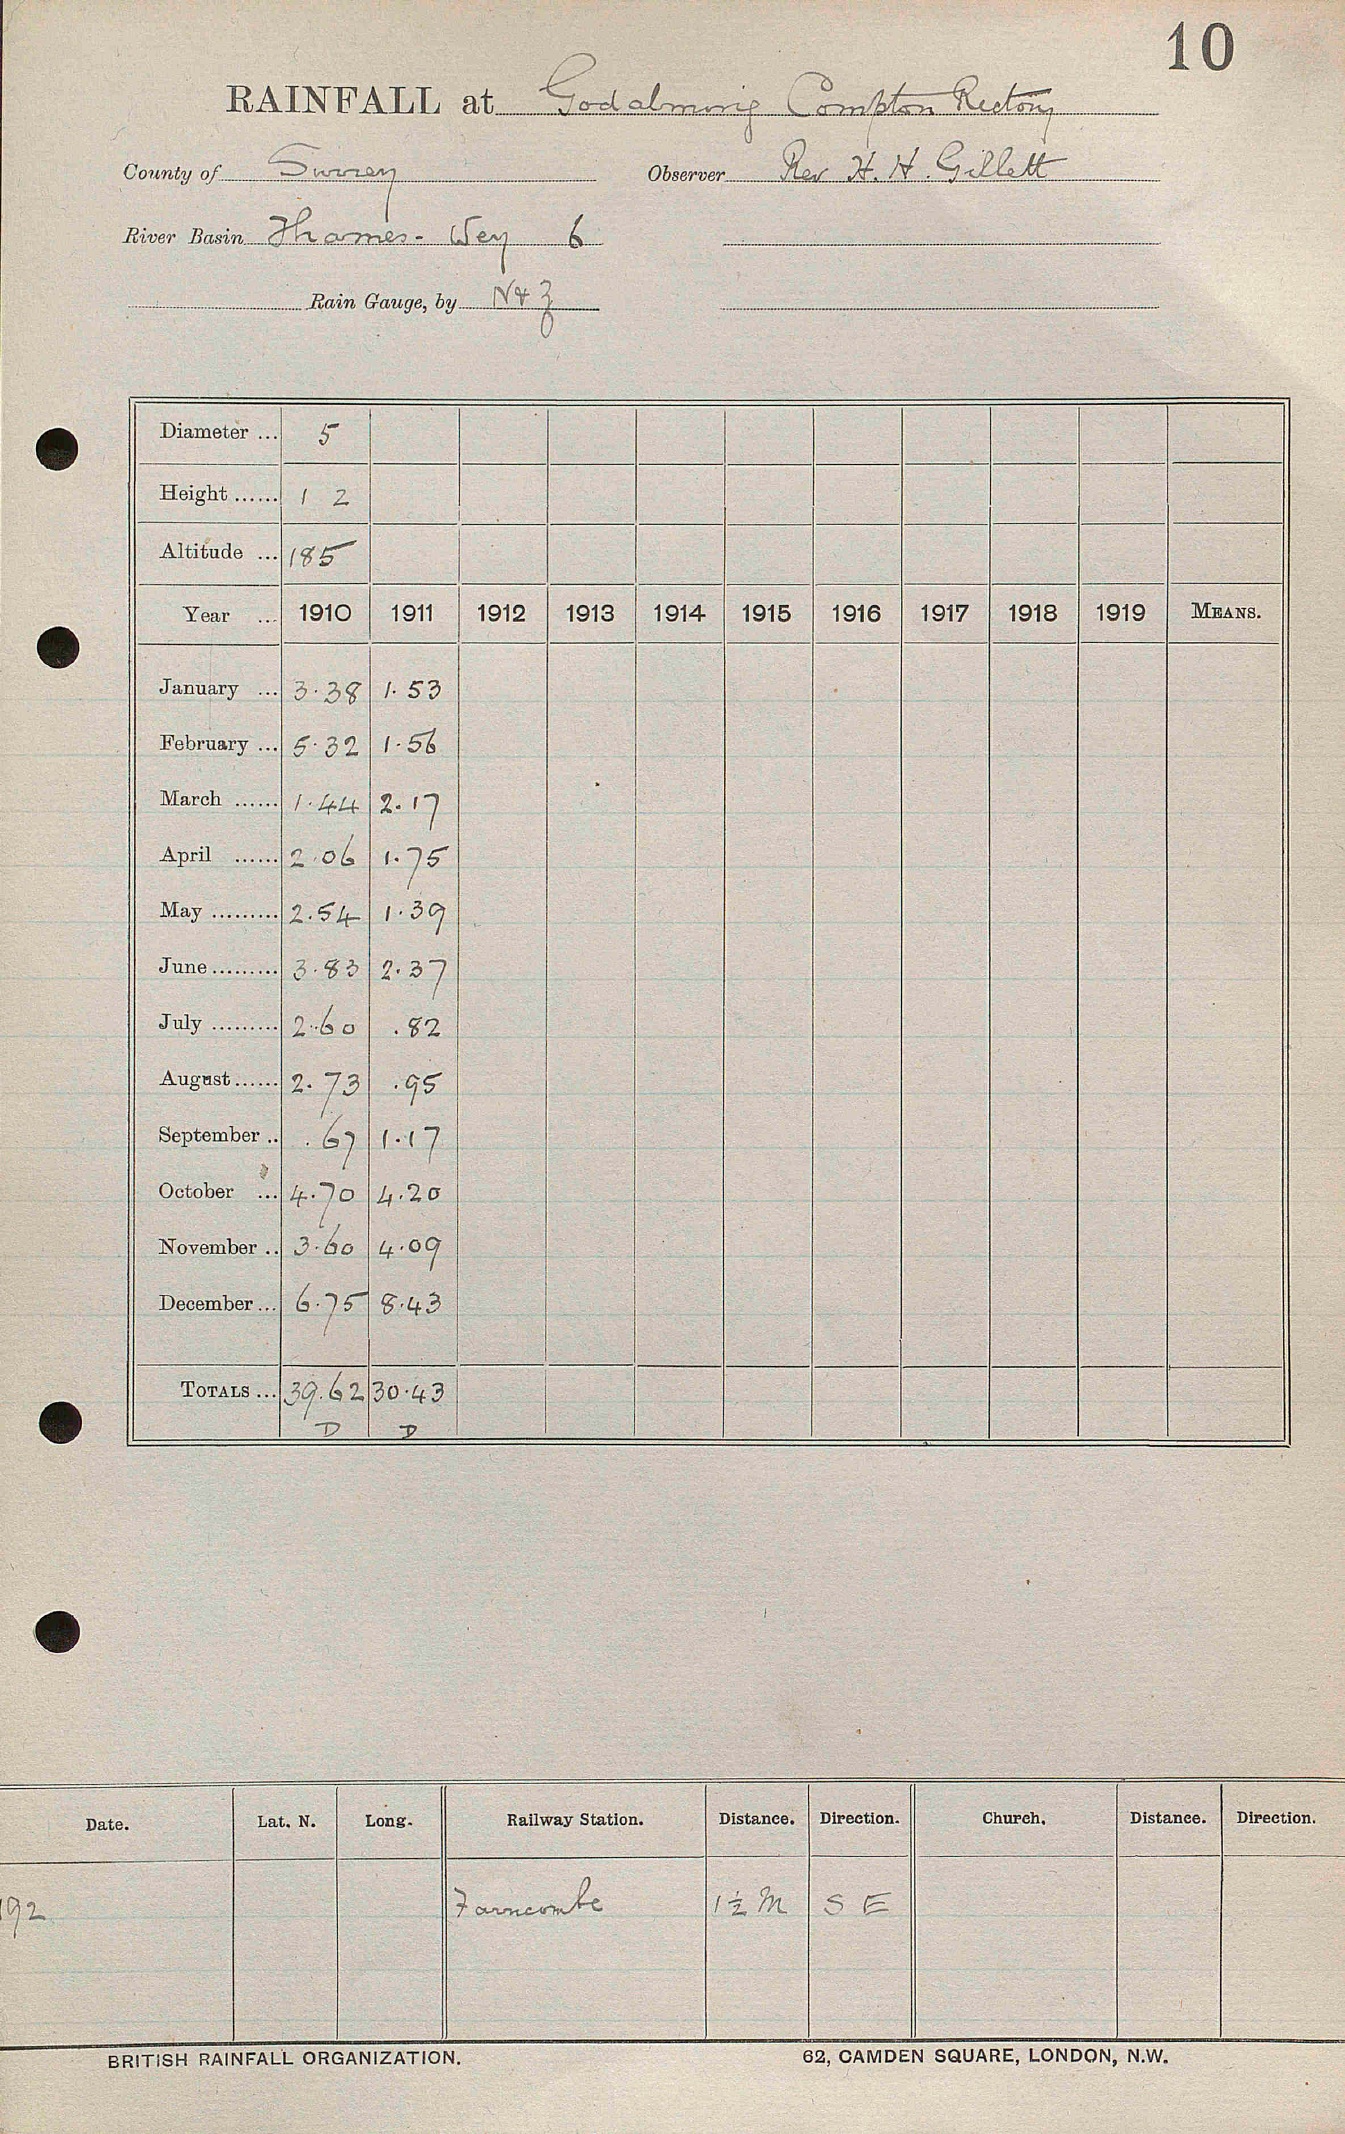 10
RAINFALL at Godalming Compton Rectory
County of Surrey Observer Rev H. H. Gillett
River Basin Thames - Wey 6
Rain Gauge, by N & Z
Diameter ... 5
Height ...... 1 2
Altitude ... 185
Year ... 1910 1911 1912 1913 1914 1915 1916 1917 1918 1919 MEANS.
January ... 3.38 1.53
February ... 5.32 1.56
March ...... 1.44 2.17
April ...... 2.06 1.75
May ......... 2.54 1.39
June ......... 3.83 2.37
July ......... 2.60 .82
August ...... 2.73 .95
September .. .67 1.17
October ... 4.70 4.20
November .. 3.60 4.09
December ... 6.75 8.43
TOTALS ... 39.62 30.43
D D
Date. Lat. N. Long. Railway Station. Distance. Direction. Church. Distance. Direction.
192 Farncombe 1½ M S E
BRITISH RAINFALL ORGANIZATION. 62, CAMDEN SQUARE, LONDON, N.W.